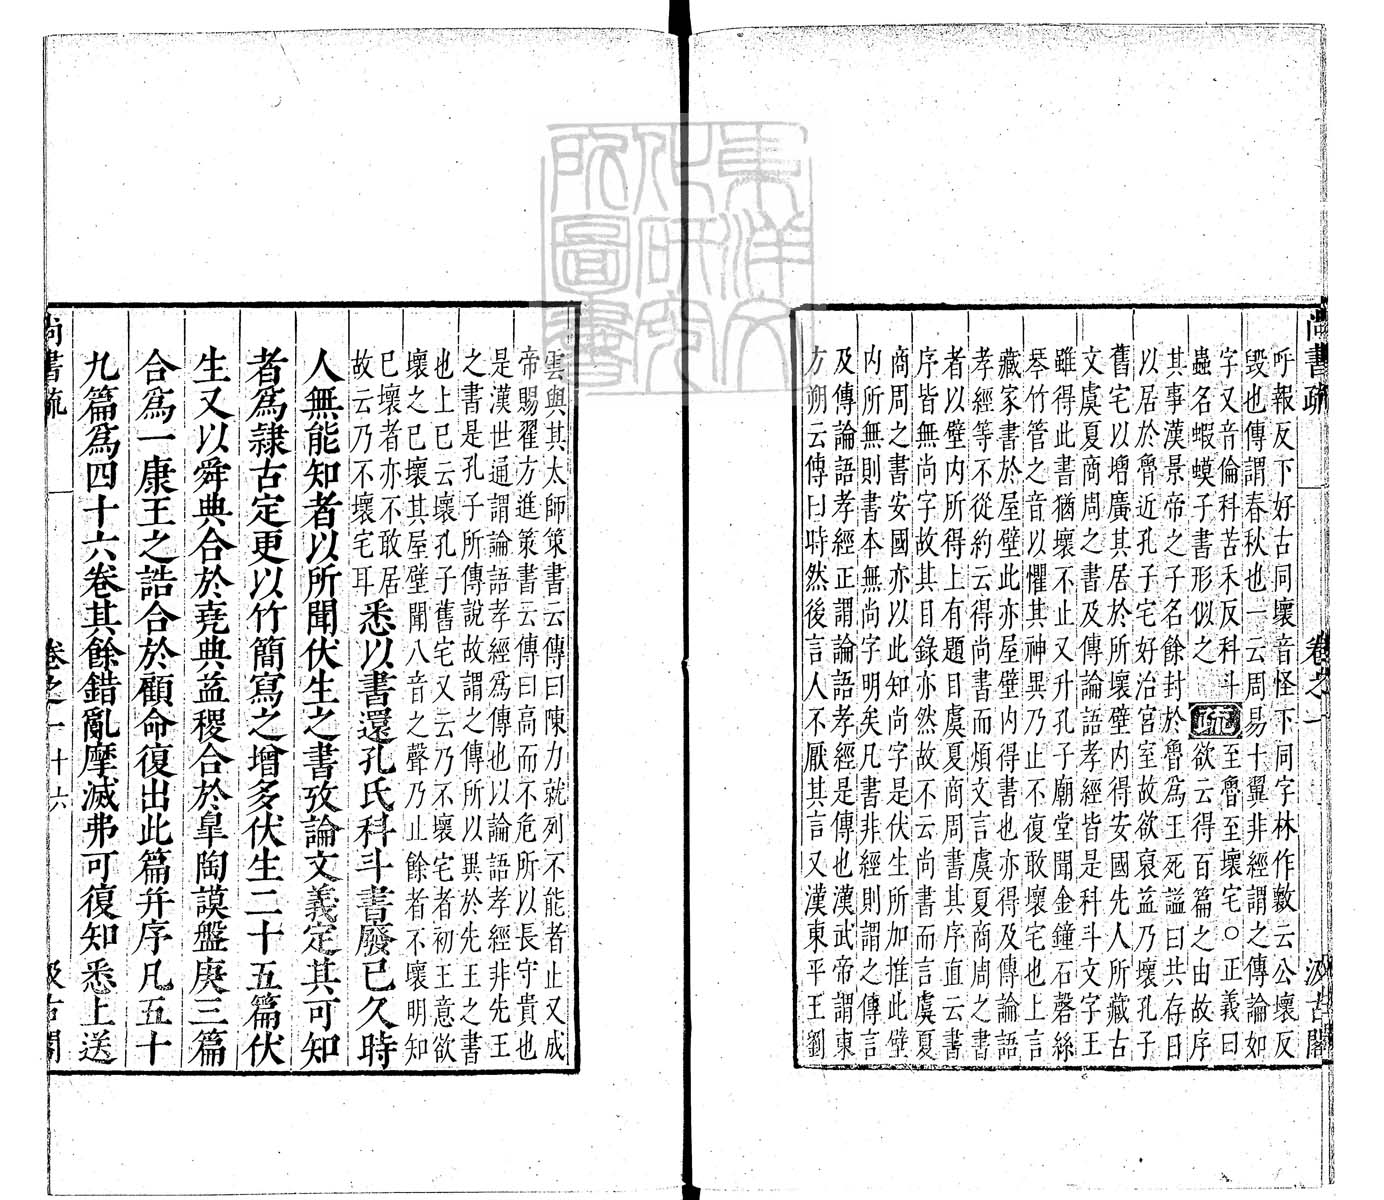 尚書疏 卷之一 汲古閣
呼報反下好古同壞音怪下同字林作𣀩云公壞反
毀也傳謂春秋也一云周易十翼非經謂之傳論如
字又音倫科苦禾反科斗
蟲名蝦蟆子書形似之
疏
至魯至壞宅○正義曰
欲云得百篇之由故序
其事漢景帝之子名餘封於魯爲王死謚曰共存日
以居於魯近孔子宅好治宮室故欲裒益乃壞孔子
舊宅以增廣其居於所壞壁內得安國先人所藏古
文虞夏商周之書及傳論語孝經皆是科斗文字王
雖得此書猶壞不止又升孔子廟堂聞金鐘石磬絲
琴竹管之音以懼其神異乃止不復敢壞宅也上言
藏家書於屋壁此亦屋壁內得書也亦得及傳論語
孝經等不從約云得尚書而煩文言虞夏商周之書
者以壁內所得上有題目虞夏商周書其序直云書
序皆無尚字故其目錄亦然故不云尚書而言虞夏
商周之書安國亦以此知尚字是伏生所加推此壁
內所無則書本無尚字明矣凡書非經則謂之傳言
及傳論語孝經正謂論語孝經是傳也漢武帝謂東
方朔云傳曰時然後言人不厭其言又漢東平王劉
雲與其太師策書云傳曰陳力就列不能者止又成
帝賜翟方進策書云傳曰高而不危所以長守貴也
是漢世通謂論語孝經爲傳也以論語孝經非先王
之書是孔子所傳說故謂之傳所以異於先王之書
也上已云壞孔子舊宅又云乃不壞宅者初王意欲
壞之已壞其屋壁聞八音之聲乃止餘者不壞明知
已壞者亦不敢居
故云乃不壞宅耳
悉以書還孔氏科斗書廢已久時
人無能知者以所聞伏生之書攷論文義定其可知
者爲隸古定更以竹簡寫之增多伏生二十五篇伏
生又以舜典合於堯典益稷合於皐陶謨盤庚三篇
合爲一康王之誥合於顧命復出此篇并序凡五十
九篇爲四十六卷其餘錯亂摩滅弗可復知悉上送
尚書疏 卷之一 十六 汲古閣
東洋文
化研究
所圖書